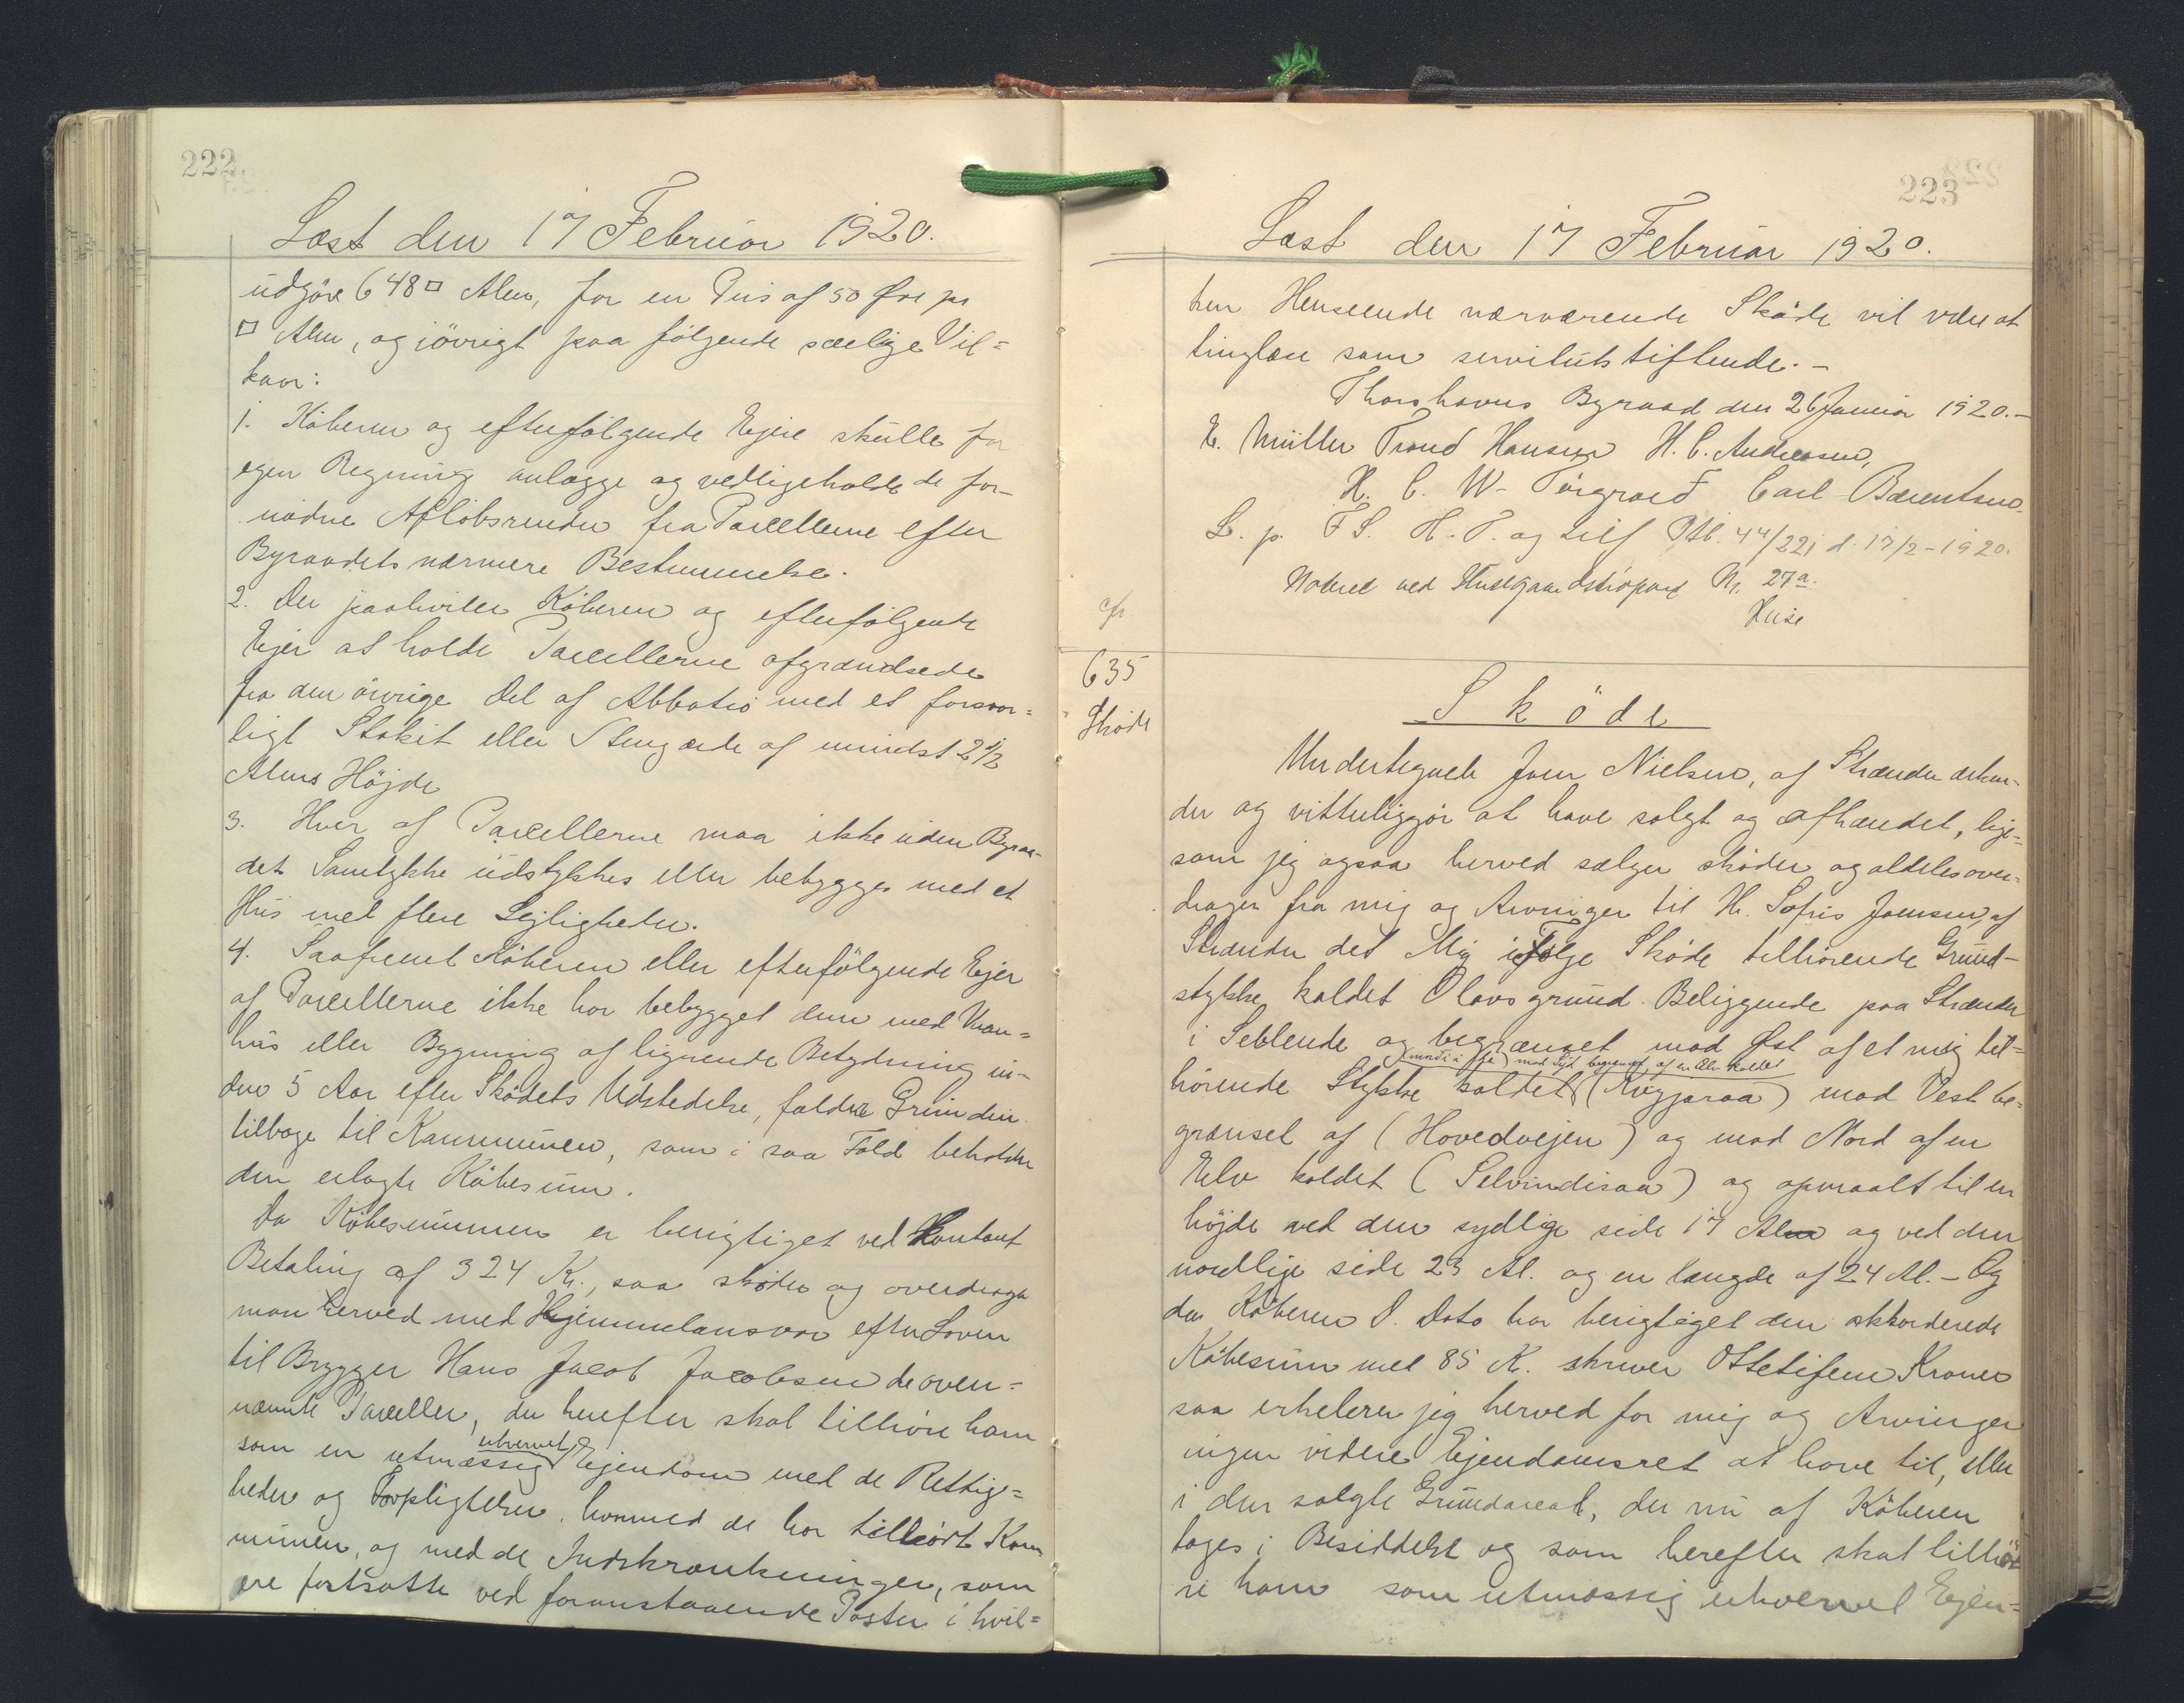 222
Læst den 17 Februar 1920.
udgör 648 □ Alen, for en Pris af 50 Øre pr
□ Alen, og iövrigt paa fölgende særlige Vil=
kaar:
1. Köberen og efterfölgende Ejere skulle for
egen Regning anlægge og vedligeholde de for-
nödne Aflöbsrender fra Parcellerne efter
Byraadets nærmere Bestemmelse.
2. Der paahviler Köberen og efterfölgende
Ejer at holde Parcellerne afgrændsede
fra den övrige Del af Abbotið med et forsvar=
ligt Stakit eller Stengærde af mindst 2 1/2
Alens Höjde
3. Hver af Parcellerne maa ikke uden Byraa-
dets Samtykke udstykkes eller bebygges med et
Hus med flere Lejligheder.
4. Saafremt Köberen eller efterfölgende Ejer
af Parcellerne ikke har bebygget dem med Vaan=
hus eller Bygning af lignende Betydning in-
den 5 Aar efter Sködets Udstedelse, falder Grunden
tilbage til Kommunen, som i saa Fald beholder
den erlagte Köbesum.
Da Köbesummen er berigtiget ved Kontant
Betaling af 324 Kr., saa sköder og overdrager
man herved med Hjemmelansvar efter Loven
til Brygger Hans Jacob Jacobsen de oven=
nævnte Parceller, der herefter skal tilhöre ham
som en retmæssig erhvervet Ejendom med de Rettig=
heder og Forpligtelser hvormed de har tilhört Kom
munen, og med de Indskrænkninger, som
ere fastsatte ved foranstaaende Poster i hvil=
223
Læst den 17 Februar 1920.
ken Henseende nærværende Sköde vil være at
tinglæse som servitutstiftende.-
Thorshavns Byraad den 26 Januar 1920.-
E. Müller Trond Hansen H. C. Andreasen,
H. C. W. Tórgarð Carl Bærentsen.
L. p. F S. H. T. og
44/221 d. 17/2-1920.
Noteret ved Nr. 27a.
cfr
635
Sköde
Sköde
Undertegnede Joen Nielsen, af Strænder erken-
der og vitterliggör at have solgt og afhændet, lige=
som jeg ogsaa herved sælger sköder og aldeles over-
drager fra mig og Arvinger til Hr. Sofus Joensen, af
Strænder det Mig ifölge Sköde tilhörende Grund-
stykke kaldet Olavsgrund. Beliggende paa Strænder
i Seblende og begrænset mod Øst af et mig til=
hörende Stykke kaldet mod Syd begrænset, af en Elv kaldet (Kvyjaraa) mod Vest be=
grænset af (Hovedvejen) og mod Nord af en
Elv kaldet (Selvindisaa) og opmaalt til en
höjde ved den sydlige side 17 Alen og ved den
nordlige side 23 Al. og en længde af 24 Al. - Og
da Köberen D. Dato har berigtiget den akkorderede
Köbesum med 85 K. skriver Ottetifem Kroner
saa erkelerer jeg herved for mig og Arvinger
ingen videre Ejendomsret at have til, eller
i den solgte Grundareal, der nu af Köberen
tages i Besiddelse og som herefter skal tilhö
re ham som retmæssig erhvervet Ejen=